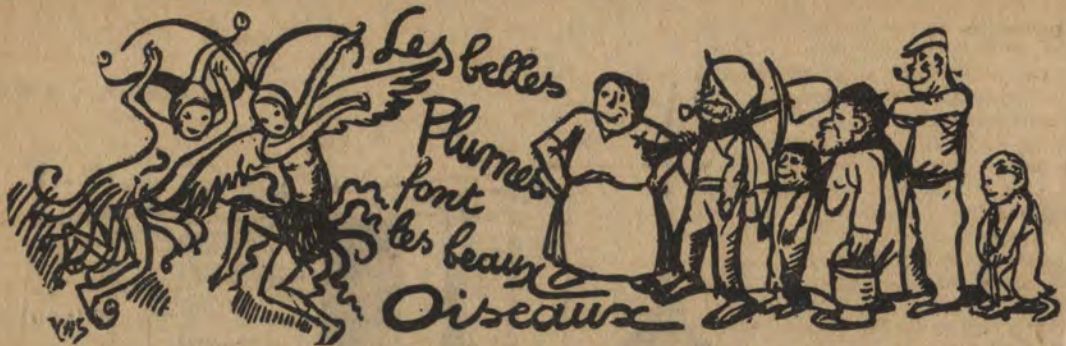 Les belles
Plumes
font
les beaux
Oiseaux